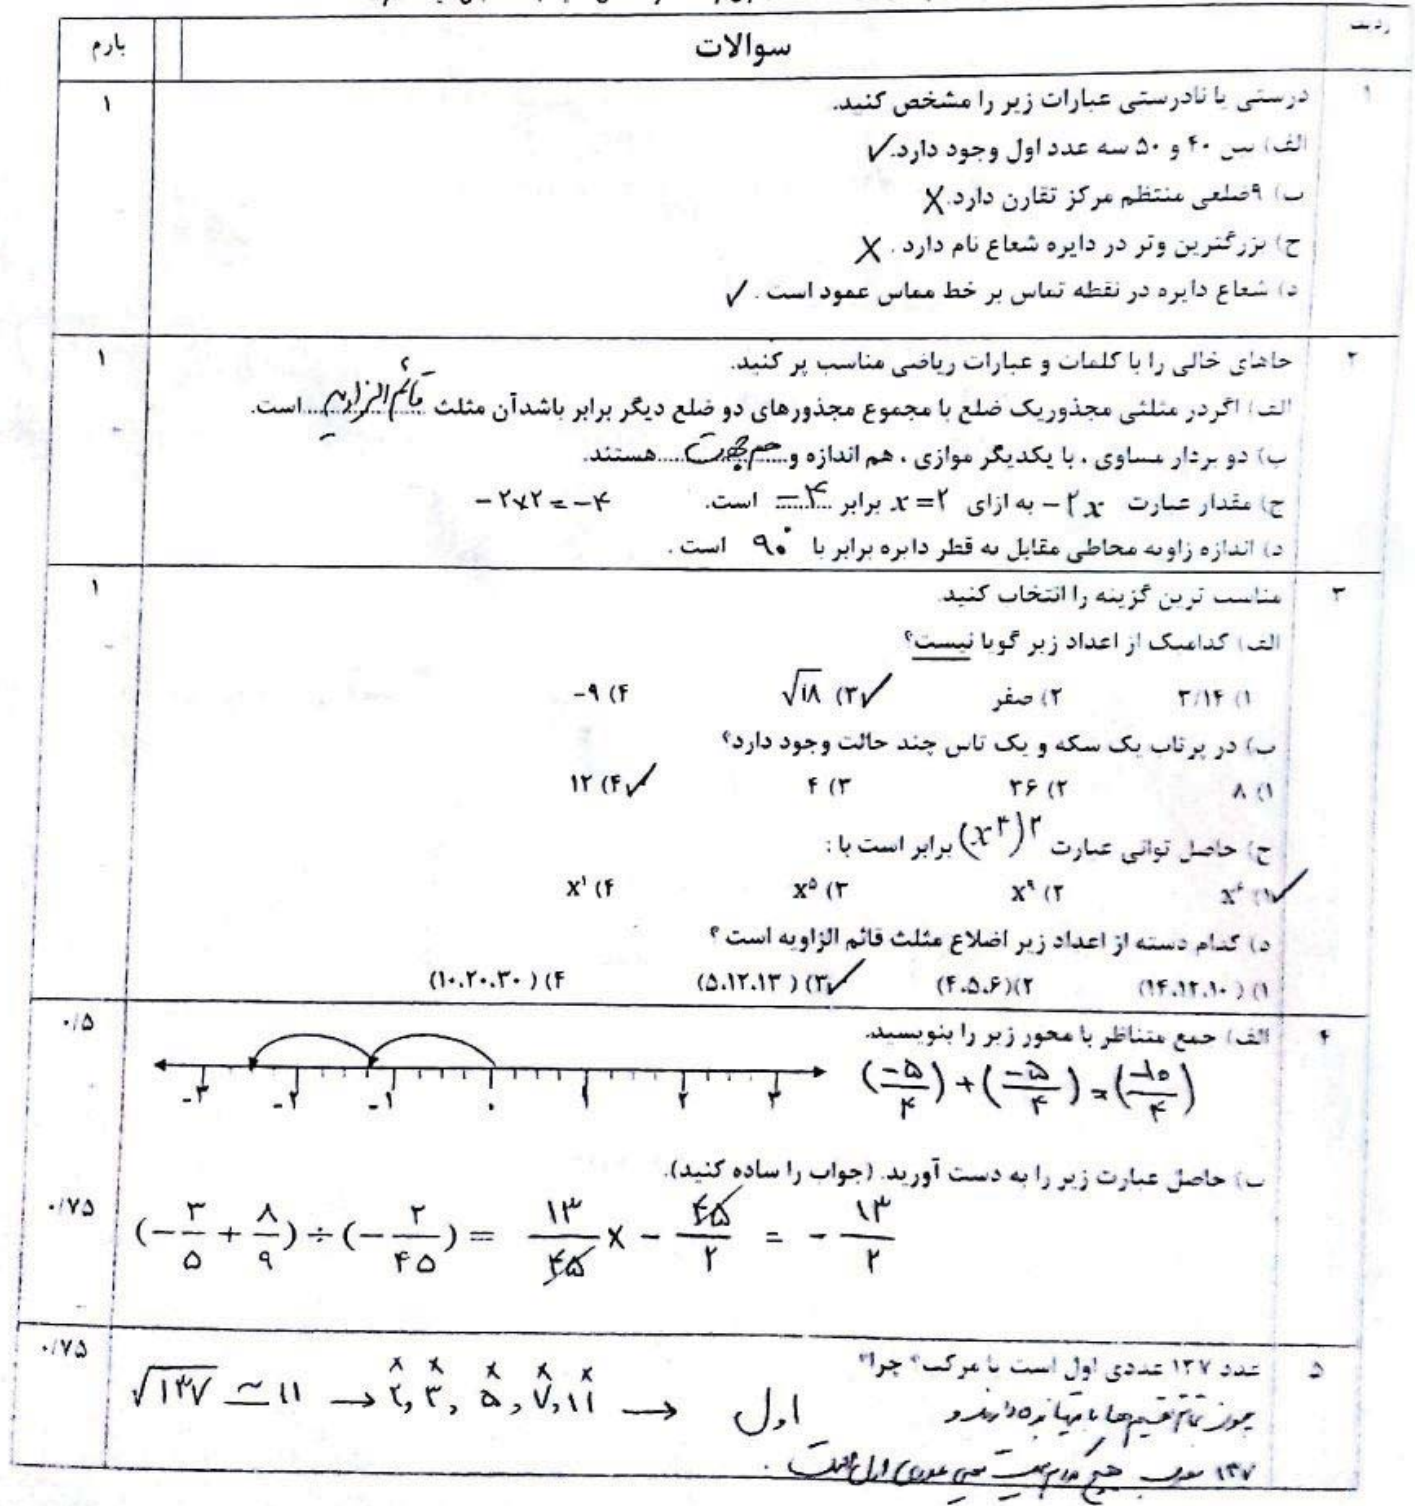 ردیف سوالات بارم
۱ درستی یا نادرستی عبارات زیر را مشخص کنید. ۱
الف) بین ۴۰ و ۵۰ سه عدد اول وجود دارد. ✓
ب) ۹ضلعی منتظم مرکز تقارن دارد. X
ج) بزرگترین وتر در دایره شعاع نام دارد . X
د) شعاع دایره در نقطه تماس بر خط مماس عمود است . ✓
۲ جاهای خالی را با کلمات و عبارات ریاضی مناسب پر کنید. ۱
الف) اگردر مثلثی مجذوریک ضلع با مجموع مجذورهای دو ضلع دیگر برابر باشدآن مثلث قائم الزاویه است.
ب) دو بردار مساوی ، با یکدیگر موازی ، هم اندازه و هم جهت هستند.
ج) مقدار عبارت -۲x به ازای x=۲ برابر -۴ است. -۲×۲=-۴
د) اندازه زاویه محاطی مقابل به قطر دایره برابر با ۹۰° است .
۳ مناسب ترین گزینه را انتخاب کنید. ۱
الف) کدامیک از اعداد زیر گویا نیست؟
۱) ۳/۱۴ ۲) صفر ۳) √۱۸ ✓ ۴) ۹-
ب) در پرتاب یک سکه و یک تاس چند حالت وجود دارد؟
۱) ۸ ۲) ۳۶ ۳) ۴ ۴) ۱۲ ✓
ج) حاصل توانی عبارت (x³)² برابر است با :
۱) x⁶ ✓ ۲) x⁹ ۳) x⁵ ۴) x¹
د) کدام دسته از اعداد زیر اضلاع مثلث قائم الزاویه است ؟
۱) (۱۴،۱۲،۱۰) ۲)(۴،۵،۶) ۳) (۵،۱۲،۱۳) ✓ ۴) (۱۰،۲۰،۳۰)
۴ الف) جمع متناظر با محور زیر را بنویسید. ۰/۵
(-۵/۴) + (-۵/۴) = (-۱۰/۴)
-۳ -۲ -۱ ۰ ۱ ۲ ۳
ب) حاصل عبارت زیر را به دست آورید. (جواب را ساده کنید). ۰/۷۵
(-۳/۵ + ۸/۹) ÷ (-۲/۴۵) = ۱۳/۴۵ × -۴۵/۲ = -۱۳/۲
۵ عدد ۱۳۷ عددی اول است یا مرکب؟ چرا؟ ۰/۷۵
√۱۳۷ ≃ ۱۱ → ۲, ۳, ۵, ۷, ۱۱ → اول
چون تمام تقسیم ها باقیمانده دارند و
۱۳۷ مضرب هیچ کدام نیست یعنی عددی اول است .